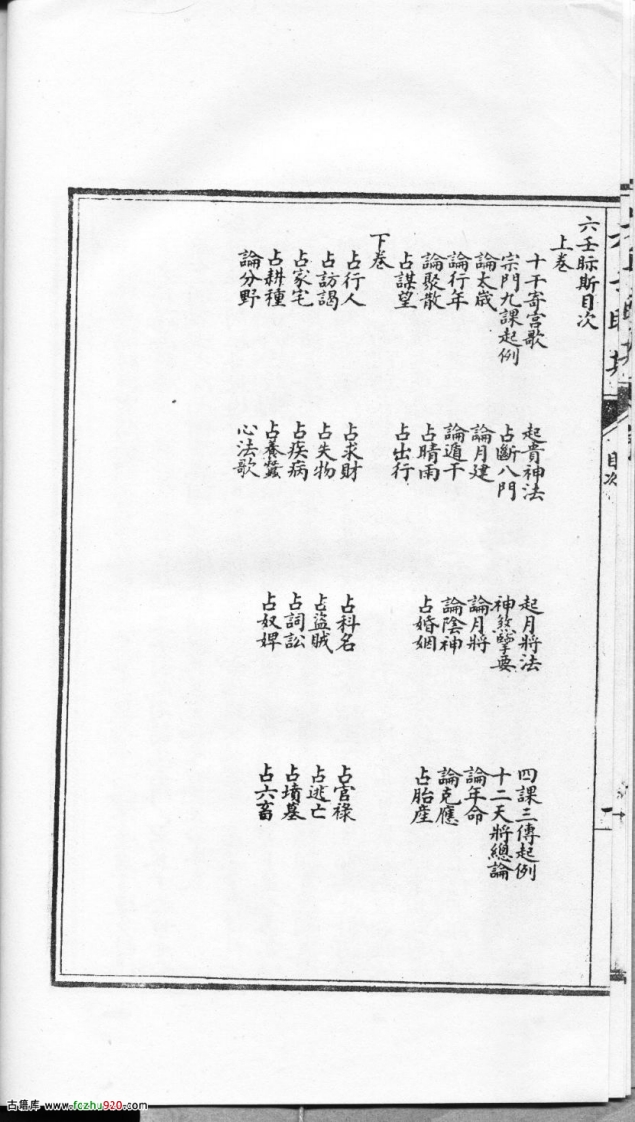 六壬眎斯目次
上卷
十干寄宮歌 起貴神法 起月將法 四課三傳起例
宗門九課起例 占斷八門 神煞掔要 十二天將總論
論太歲 論月建 論月將 論年命
論行年 論遁干 論陰神 論克應
論聚散 占晴雨 占婚姻 占胎產
占謀望 占出行
下卷
占行人 占求財 占科名 占官祿
占訪謁 占失物 占盜賊 占逃亡
占家宅 占疾病 占詞訟 占墳墓
占耕種 占養蠶 占奴婢 占六畜
論分野 心法歌
目次
古籍库 www.fczhu920.com